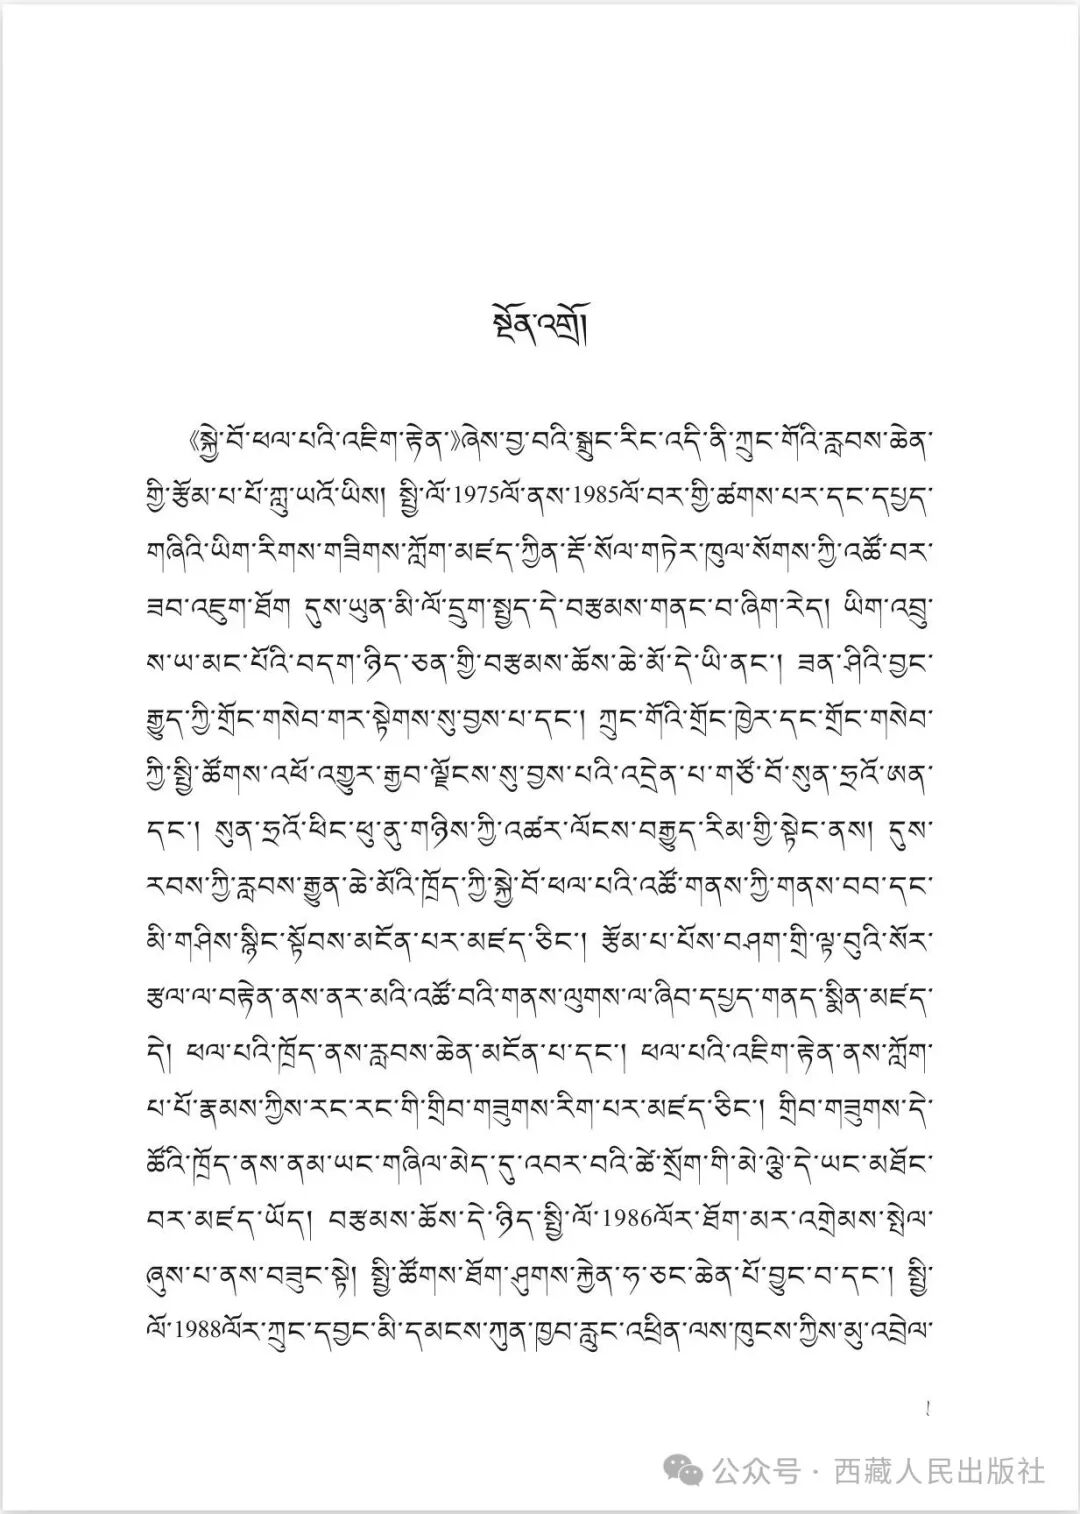 སྔོན་འགྲོ།
《སྐྱེ་བོ་ཕལ་པའི་འཇིག་རྟེན་》ཞེས་བྱ་བའི་སྒྲུང་རིང་འདི་ནི་ཀྲུང་གོའི་རླབས་ཆེན་
གྱི་རྩོམ་པ་པོ་ཀླུ་ཡའོ་ཡིས། སྤྱི་ལོ་1975ལོ་ནས་1985ལོ་བར་གྱི་ཚགས་པར་དང་དཔྱད་
གཞིའི་ཡིག་རིགས་གཟིགས་ཀློག་མཛད་ཀྱིན་རྡོ་སོལ་གཏེར་ཁུལ་སོགས་ཀྱི་འཚོ་བར་
ཟབ་འཇུག་ཐོག དུས་ཡུན་མི་ལོ་དྲུག་སྤྱད་དེ་བརྩམས་གནང་བ་ཞིག་རེད། ཡིག་འབྲུ་
ས་ཡ་མང་པོའི་བདག་ཉིད་ཅན་གྱི་བརྩམས་ཆོས་ཆེ་མོ་དེ་ཡི་ནང་། ཟན་ཤིའི་བྱང་
རྒྱུད་ཀྱི་གྲོང་གསེབ་གར་སྟེགས་སུ་བྱས་པ་དང་། ཀྲུང་གོའི་གྲོང་ཁྱེར་དང་གྲོང་གསེབ་
ཀྱི་སྤྱི་ཚོགས་འཕོ་འགྱུར་རྒྱབ་ལྗོངས་སུ་བྱས་པའི་འདྲེན་པ་གཙོ་བོ་སུན་ཧྲའོ་ཨན་
དང་། སུན་ཧྲའོ་ཕིང་ཕུ་ནུ་གཉིས་ཀྱི་འཚར་ལོངས་བརྒྱུད་རིམ་གྱི་སྟེང་ནས། དུས་
རབས་ཀྱི་རླབས་རྒྱུན་ཆེ་མོའི་ཁྲོད་ཀྱི་སྐྱེ་བོ་ཕལ་པའི་འཚོ་གནས་ཀྱི་གནས་བབ་དང་
མི་གཤིས་སྙིང་སྟོབས་མངོན་པར་མཛད་ཅིང་། རྩོམ་པ་པོས་བཤག་གྲི་ལྟ་བུའི་སོར་
རྩལ་ལ་བརྟེན་ནས་ནར་མའི་འཚོ་བའི་གནས་ལུགས་ལ་ཞིབ་དཔྱད་གནད་སྨིན་མཛད་
དེ། ཕལ་པའི་ཁྲོད་ནས་རླབས་ཆེན་མངོན་པ་དང་། ཕལ་པའི་འཇིག་རྟེན་ནས་ཀློག་
པ་པོ་རྣམས་ཀྱིས་རང་རང་གི་གྲིབ་གཟུགས་རིག་པར་མཛད་ཅིང་། གྲིབ་གཟུགས་དེ་
ཚོའི་ཁྲོད་ནས་ནམ་ཡང་གཞིལ་མེད་དུ་འབར་བའི་ཚེ་སྲོག་གི་མེ་ལྕེ་དེ་ཡང་མཐོང་
བར་མཛད་ཡོད། བརྩམས་ཆོས་དེ་ཉིད་སྤྱི་ལོ་1986ལོར་ཐོག་མར་འགྲེམས་སྤེལ་
ཞུས་པ་ནས་བཟུང་སྟེ། སྤྱི་ཚོགས་ཐོག་ཤུགས་རྐྱེན་ཧ་ཅང་ཆེན་པོ་བྱུང་བ་དང་། སྤྱི་
ལོ་1988ལོར་ཀྲུང་དབྱང་མི་དམངས་ཀུན་ཁྱབ་རླུང་འཕྲིན་ལས་ཁུངས་ཀྱིས་མུ་འབྲེལ་
༡
公众号·西藏人民出版社